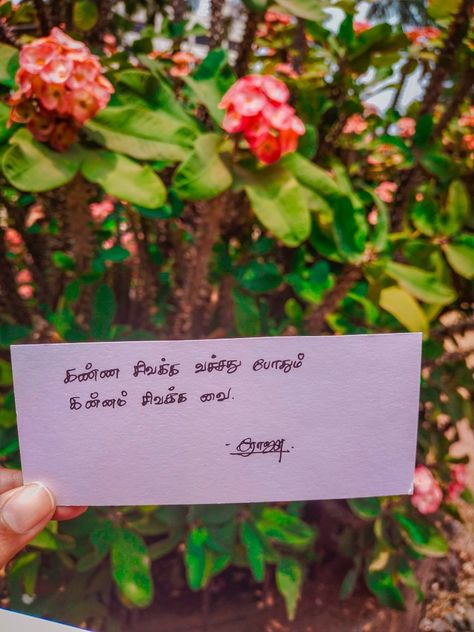 கண்ண சிவக்க வச்சது போதும்
கன்னம் சிவக்க வை.